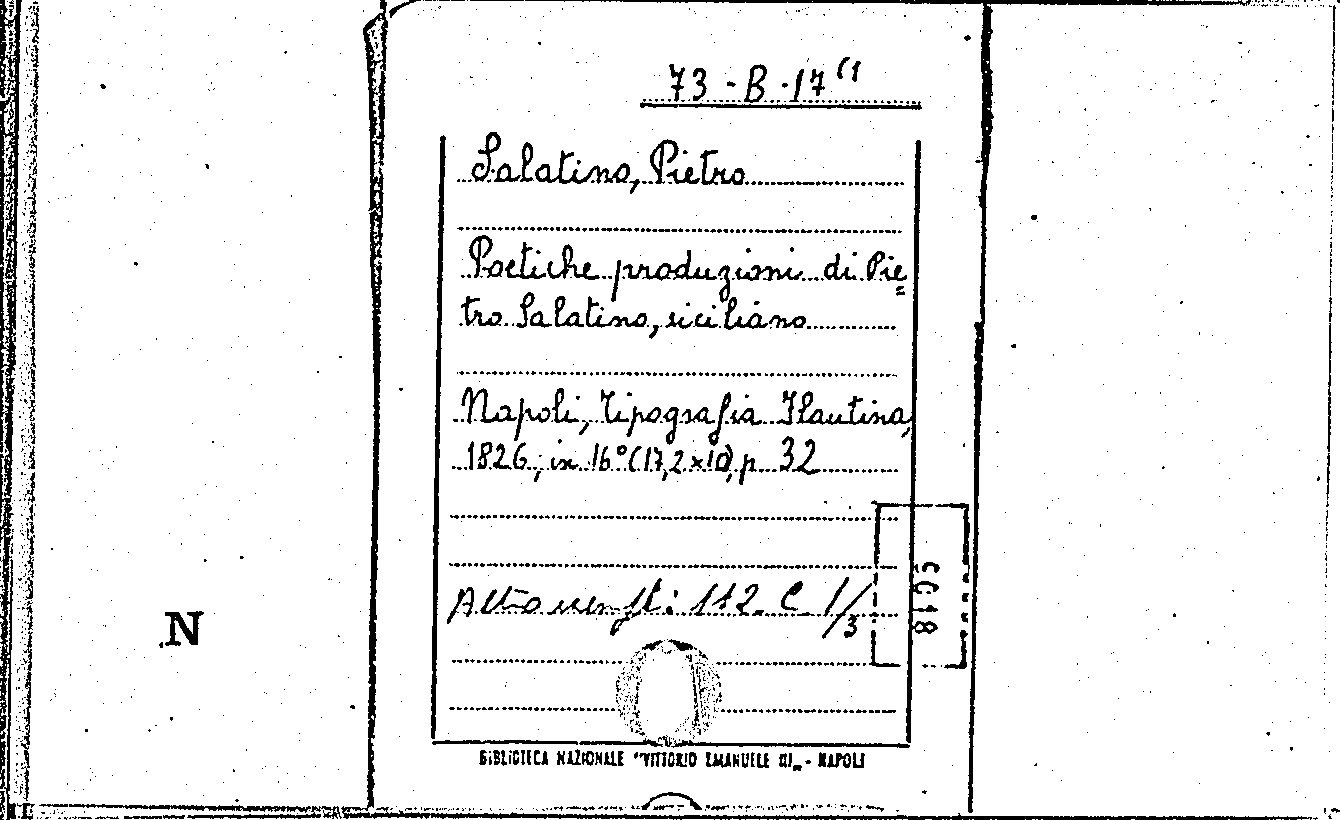 73-B-17 (1
Salatino, Pietro
Poetiche produzioni di Pie=
tro Salatino, siciliano
Napoli, Tipografia Flautina,
1826; in 16° (17,2x10), p. 32
Altro esempl: 112. C. 1/3
N
BIBLIOTECA NAZIONALE "VITTORIO EMANUELE III„ - NAPOLI